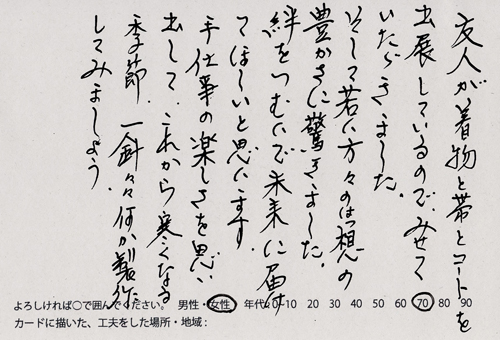 友人が着物と帯とコートを
出展しているのでみせて
いただきました。
そして若い方々のはつ想の
豊かさに驚きました。
絆をつむいで未来に届け
てほしいと思います。
手仕事の楽しさを思い
出して、これから寒くなる
季節、一針々々何か製作
してみましょう。
よろしければ○で囲んでください。 男性・女性 年代:0-10 20 30 40 50 60 70 80 90
カードに描いた、工夫をした場所・地域: